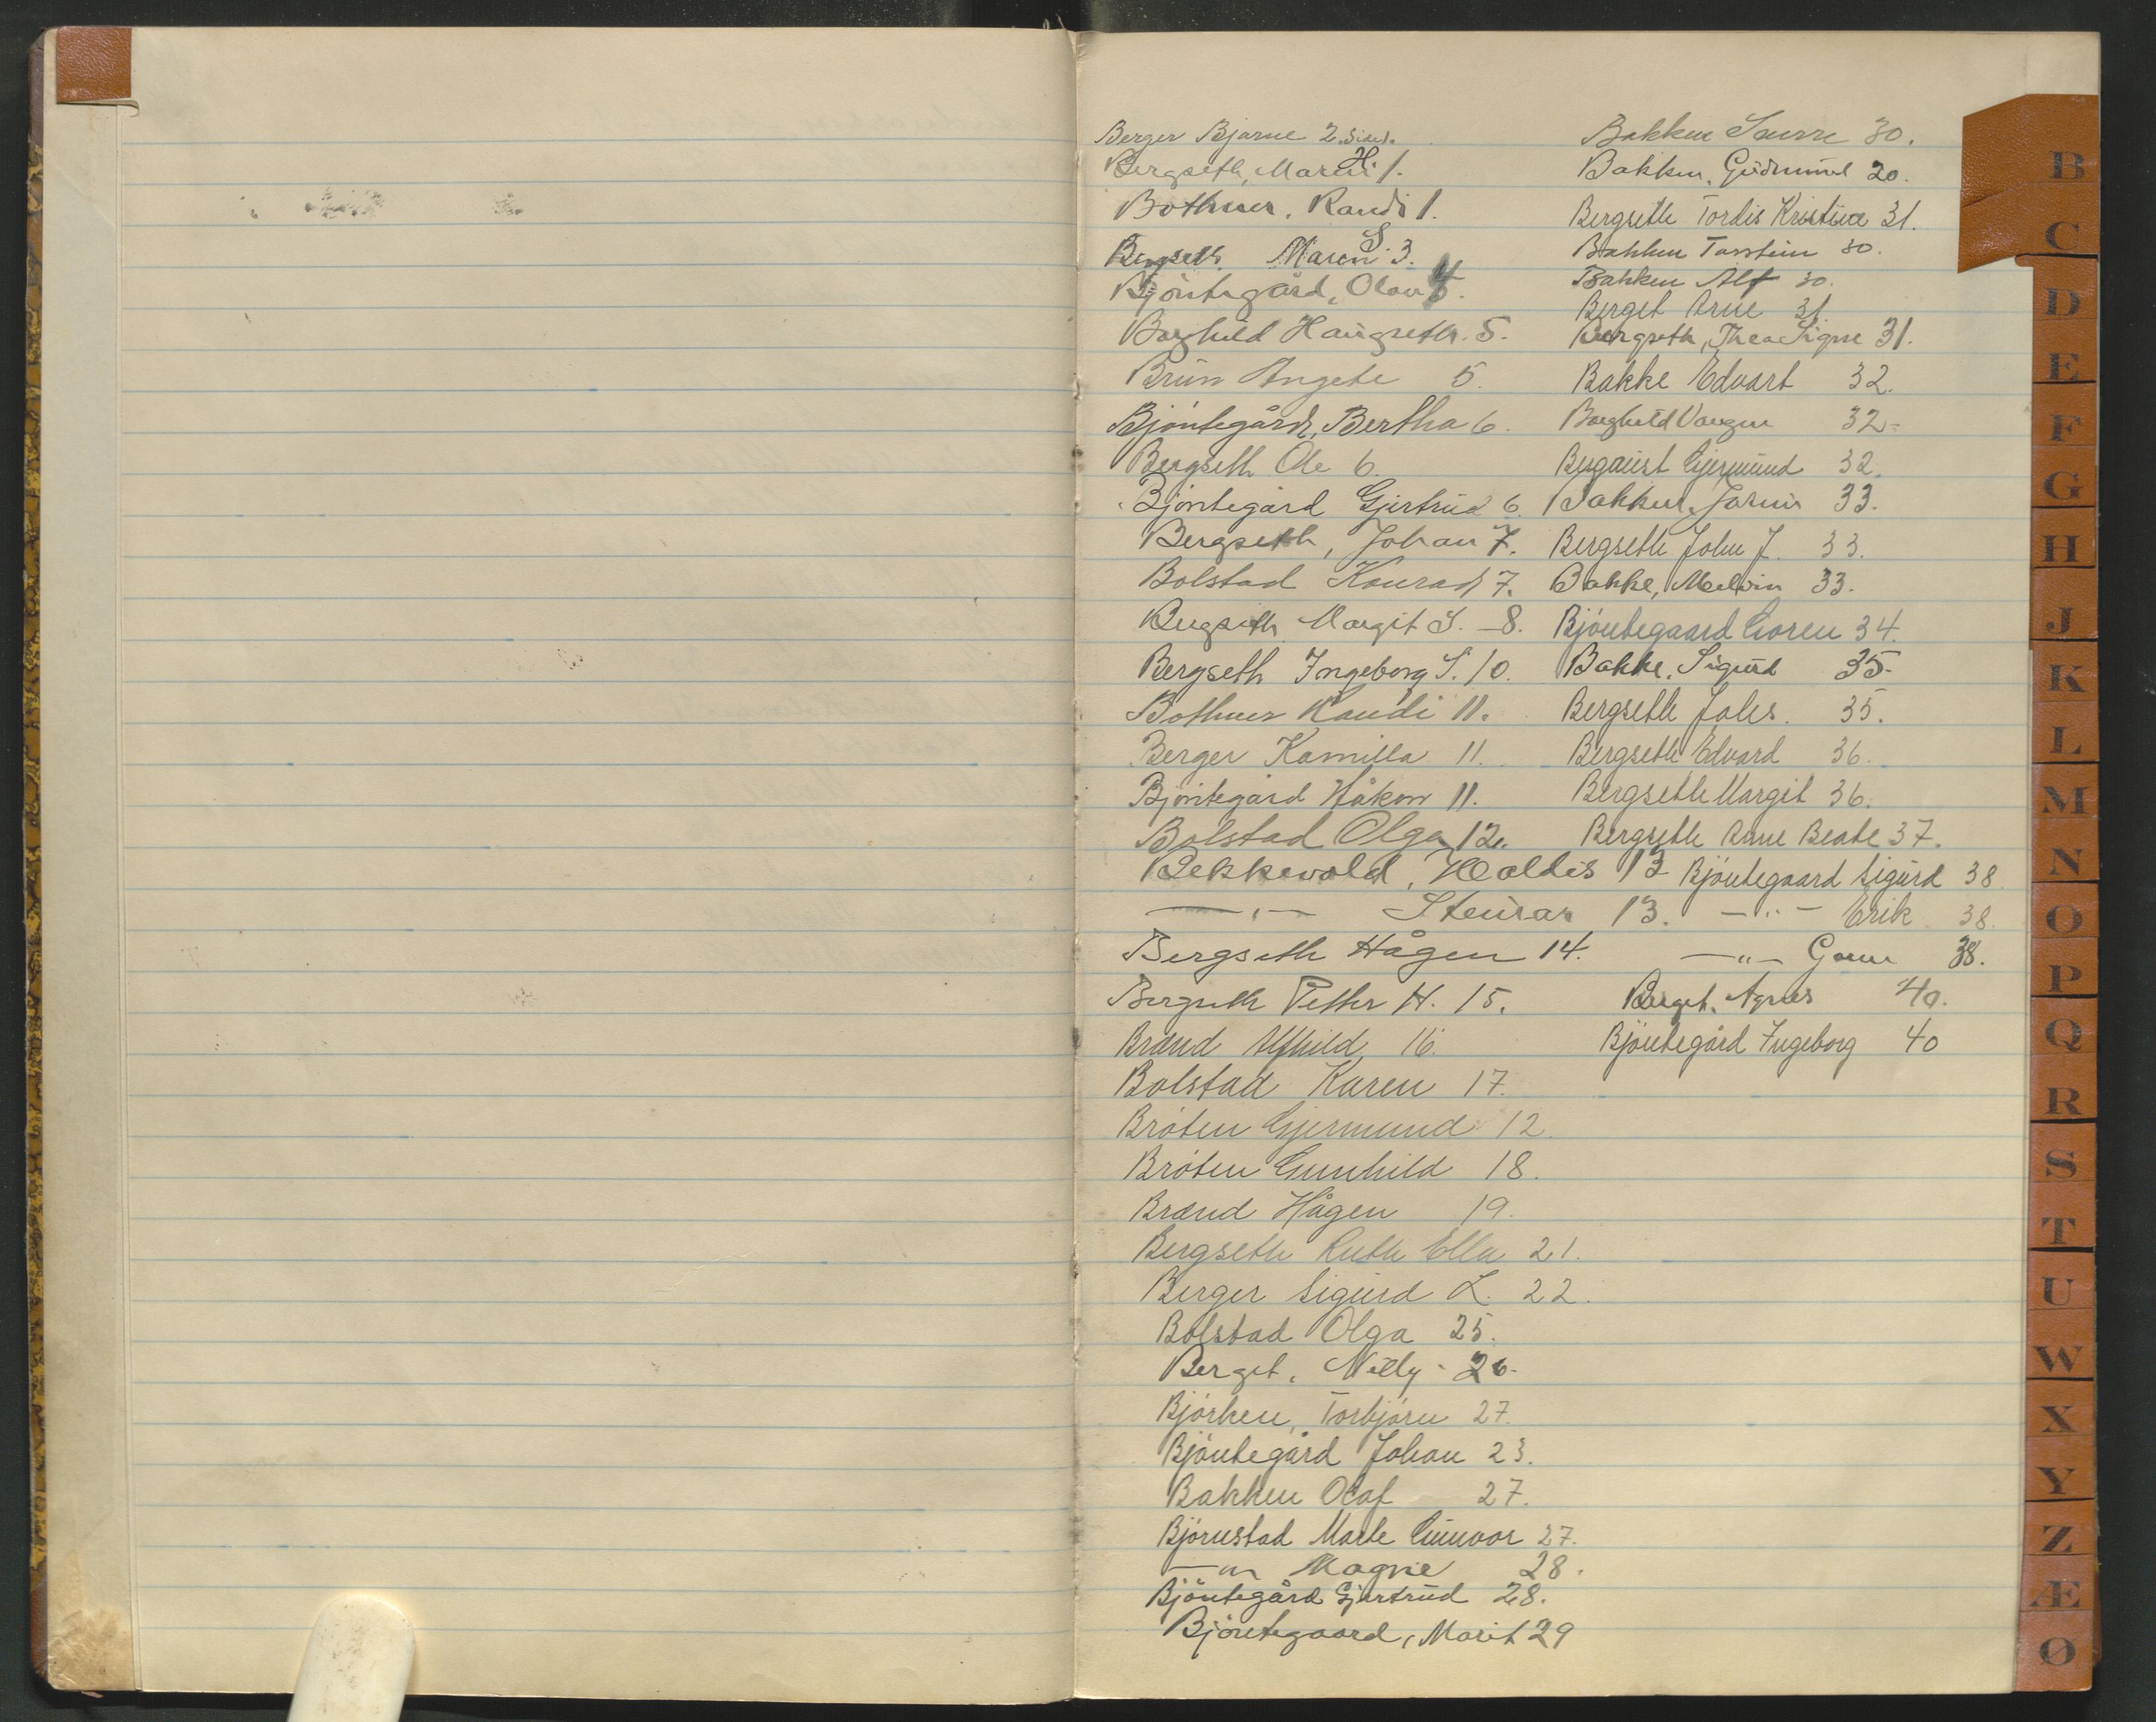 Berger Bjarne 2 side.
Bergseth, Maren H. 1.
Bothner, Randi 1.
Bergseth, Maren S. 3.
Bjöntegård, Olav
Borghild Haugseth. 5.
Brun Angete 5.
Bjöntegård, Bertha 6.
Bergseth Ole 6.
Bjöntegård Gjertrud 6.
Bergseth, Johan 7.
Bolstad Konrad 7.
Bergseth Margit S. 8.
Bergseth Ingeborg S. 10.
Bothner Randi 11.
Berger Kamilla 11.
Bjöntegård Håkon 11.
Bolstad Olga 12.
Bekkevold, Haldis 13
—„— Steinar 13.
Bergseth Hågen 14.
Bergseth Petter H. 15.
Brænd Alfhild 16.
Bolstad Karen 17.
Bröten Gjermund 12.
Bröten Gunhild 18.
Brænd Hågen 19.
Bergseth Ruth Ella 21.
Berger Sigurd L. 22.
Bolstad Olga 25.
Berget, Nelly 26.
Björken, Torbjörn 27.
Bjöntegård Johan 23.
Bakken Olaf 27.
Björnstad Marte Gunvor 27.
—„— Magne 28.
Bjöntegård Gjertrud 28.
Bjöntegaard, Marit 29
Bakken Snorre 30.
Bakken, Gudmund 20.
Bergseth Tordis Kristine 31.
Bakken Torstein 30.
Bakken Alf 30.
Berget Arne 31.
Bergseth, Thea Signe 31.
Bakke Edvart 32.
Borghild Vangen 32.
Bergquist Gjermund 32.
Bakken, Jorun 33.
Bergseth John J. 33.
Bakke, Melvin 33.
Bjöntegaard Goren 34.
Bakke, Sigurd 35.
Bergseth Johs. 35.
Bergseth Edvard 36.
Bergseth Margit 36.
Bergseth Anne Beate 37.
Bjöntegaard Sigurd 38.
—„— Erik 38.
—„— Goren 38.
Berget, Agnes 40.
Bjöntegård Ingeborg 40
B
C
D
E
F
G
H
J
K
L
M
N
O
P
Q
R
S
T
U
W
X
Y
Z
Æ
Ø